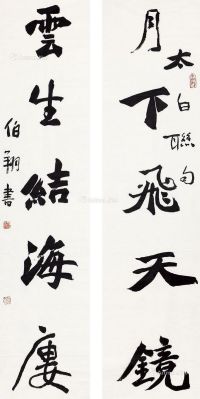 月下飛天鏡
太白聯句
雲生結海廔
伯翔書